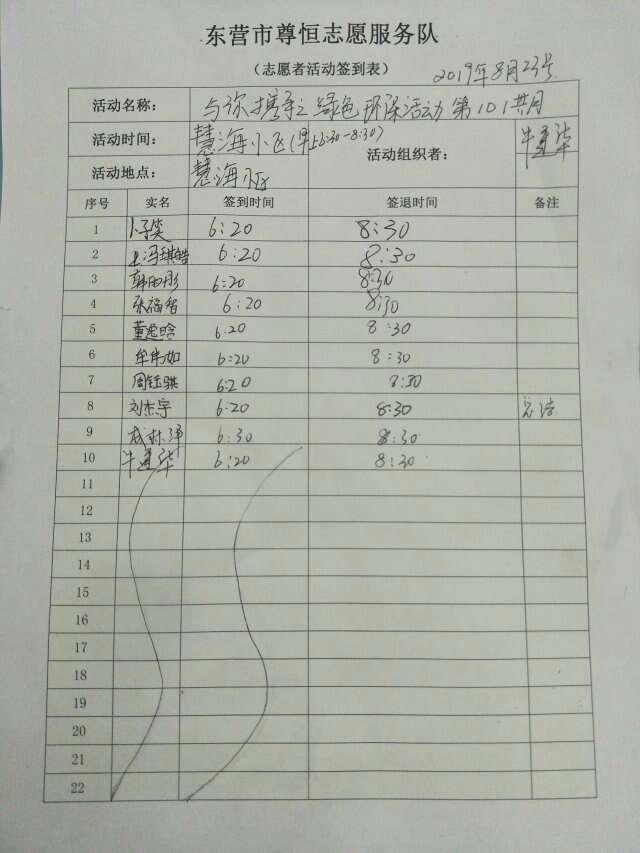 东营市尊恒志愿服务队
（志愿者活动签到表） 2019年8月23号
活动名称： 与你携手之绿色环保活动第101共月
活动时间： 慧海小区(早上6:30-8:30) 活动组织者：
活动地点： 慧海小区
序号 实名 签到时间 签退时间 备注
1 6:20 8:30
2 冯琪皓 6:20 8:30
3 6:20 8:30
4 张福智 6:20 8:30
5 6:20 8:30
6 6:20 8:30
7 周钰骐 6:20 8:30
8 刘杰宇 6:20 8:30
9 6:30 8:30
10 6:20 8:30
11
12
13
14
15
16
17
18
19
20
21
22